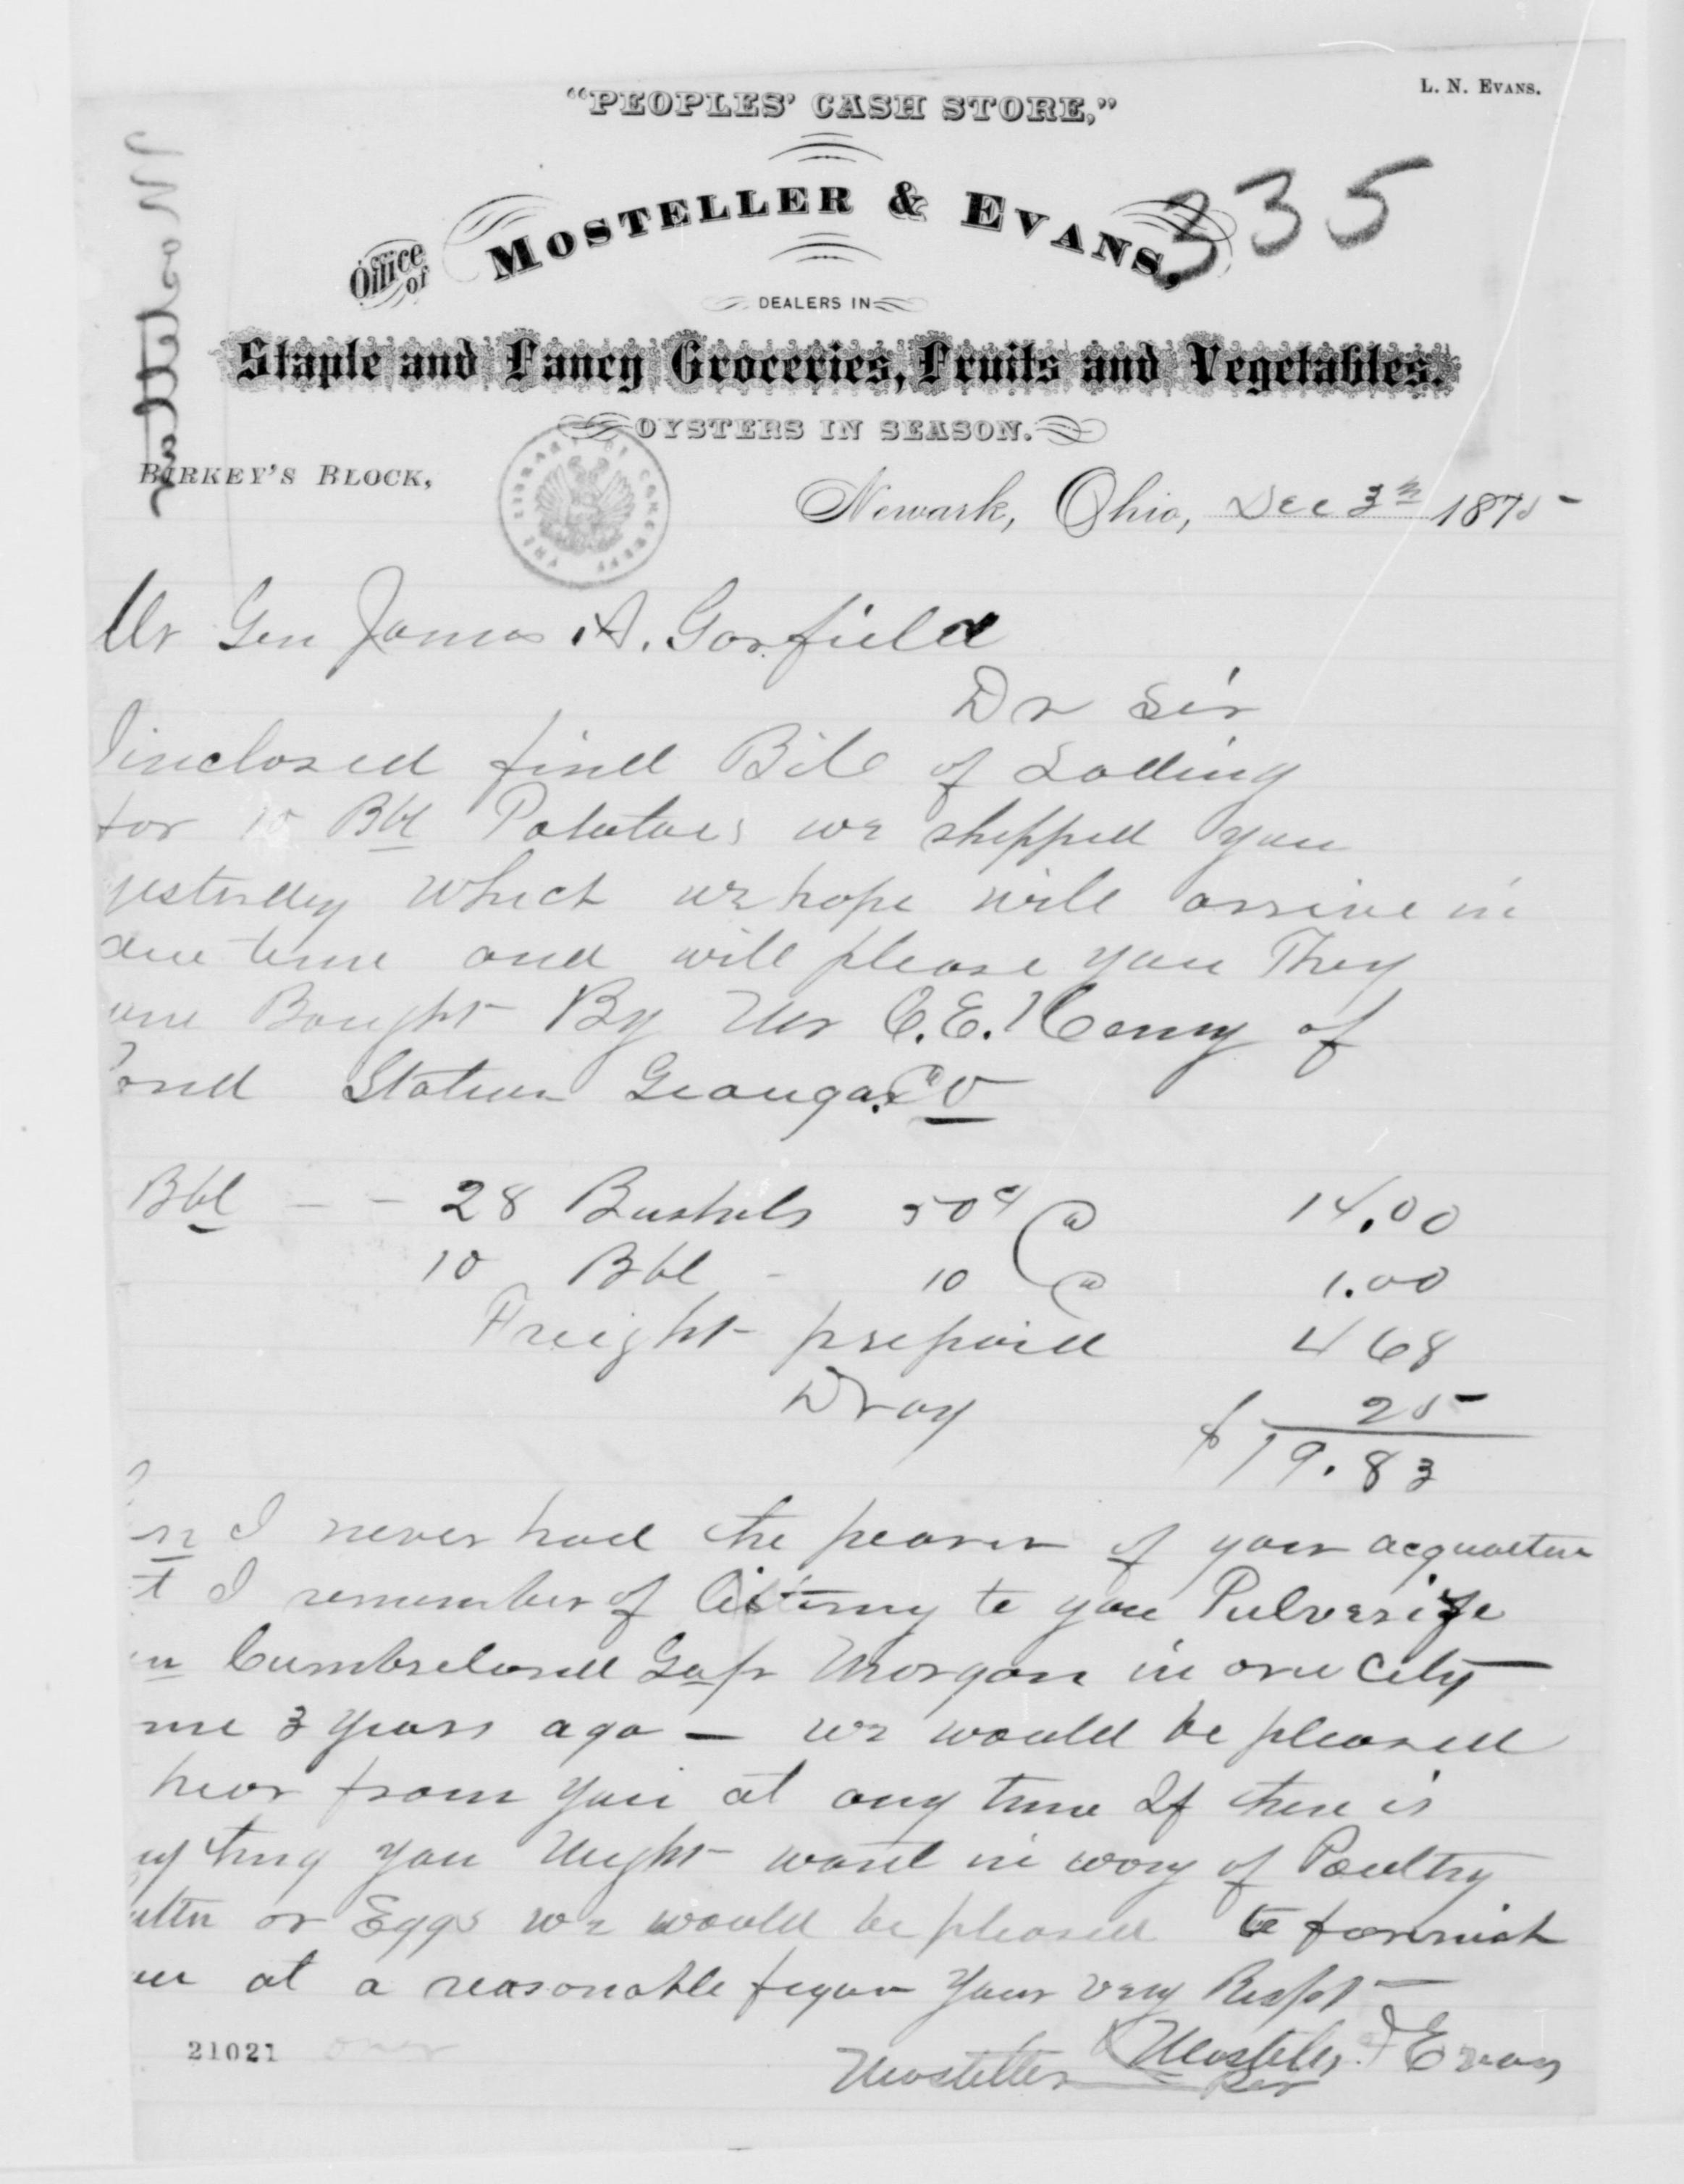 L. N. EVANS.
"PEOPLES' CASH STORE,"
335
Office of
MOSTELLER & EVANS,
DEALERS IN
Staple and Fancy Groceries, Fruits and Vegetables.
OYSTERS IN SEASON.
J Mosteller
BIRKEY'S BLOCK,
THE LIBRARY OF CONGRESS
Newark, Ohio, Dec 3th 1875
Mr Gen James A. Garfield
Dr Sir
Inclosed find Bill of Lading
for 10 Bbl Potatoes we shipped you
yesterday which we hope will arrive in
due time and will please you They
were Bought By Mr C.E. Henry of
Pond Station Geauga Co
Bbl - - 28 Bushels 50c @ 14.00
10 Bbl - 10 @ 1.00
Freight prepaid 4 68
Dray 25
$ 19.83
I never had the of your
I remember of to you Pulverize
Gap Morgan in our City
3 years ago - we would be pleased
hear from you at any time If there is
you Might want in way of Poultry
or Eggs we would be pleased to
at a reasonable Your very Respt
Mosteller & Evans
Mosteller Per
21021 over